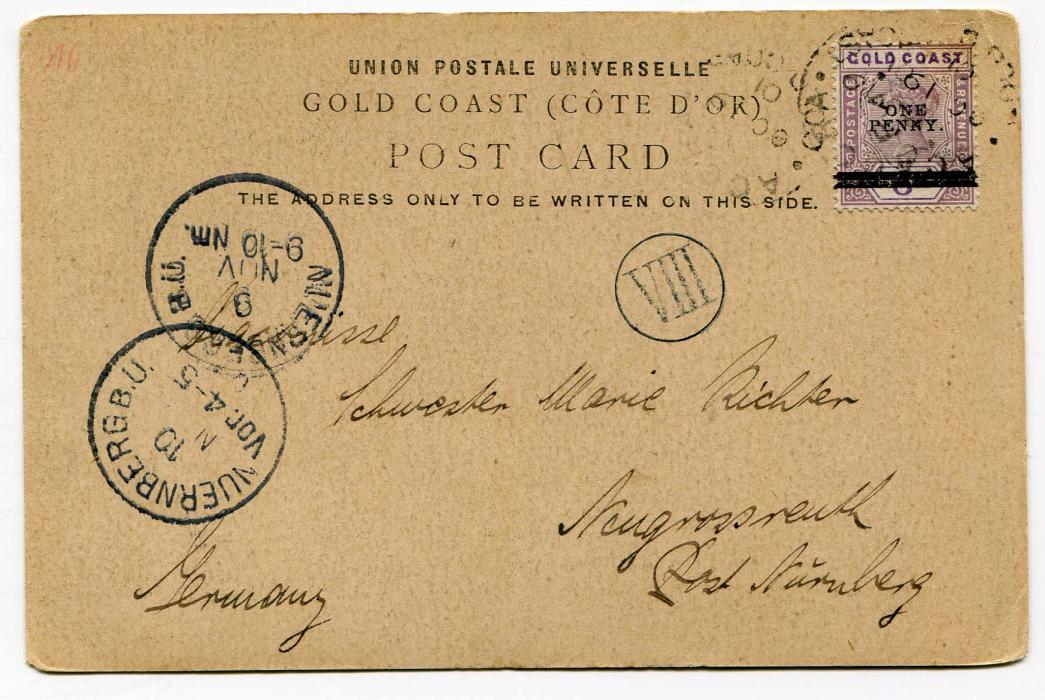 UNION POSTALE UNIVERSELLE
GOLD COAST (CÔTE D'OR)
POST CARD
THE ADDRESS ONLY TO BE WRITTEN ON THIS SIDE.
GOLD COAST
POSTAGE
ONE
PENNY.
VIII
NUERNBERG B.U.
9
NOV
9-10 Nm.
NUERNBERG B.U.
10
N
Vor. 4-5
Schwester Marie Richter
Neugrossreuth
Post Nürnberg
Germany